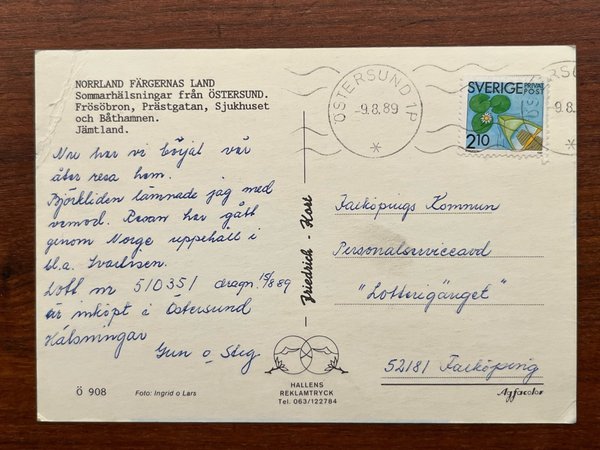 NORRLAND FÄRGERNAS LAND
Sommarhälsningar från ÖSTERSUND.
Frösöbron, Prästgatan, Sjukhuset
och Båthamnen.
Jämtland.
Nu har vi börjat vår
åter resa hem.
Björkliden lämnade jag med
vemod. Resan har gått
genom Norge uppehåll i
bl.a. Svartisen.
Lott nr 510351 dragn. 15/8 89
är inköpt i Östersund
Hälsningar
Gun o Stig
Ö 908
Foto: Ingrid o Lars
Friedrich - Kort
HALLENS
REKLAMTRYCK
Tel. 063/122784
ÖSTERSUND 1P
-9.8.89
SVERIGE PRIVAT
POST
210
ERSU
-9.8
Falköpings Kommun
Personalserviceavd
"Lotterigänget"
52181 Falköping
Agfacolor